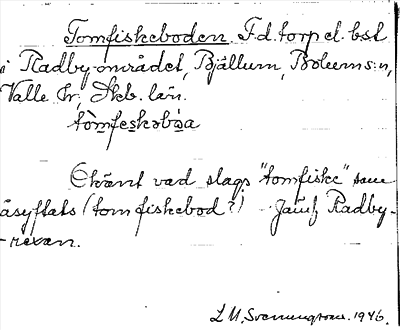 Tomfiskeboden. F.d. torp el. bst
i Radby-området, Bjällum, Bolums sn,
Valle hr, Skb. län.
tòmfeskəbòa
Okänt vad slags "tomfiske" som
åsyftats (tom fiskebod?) Jämf. Radby-
-rexan.
L M. Svenungsson. 1946.